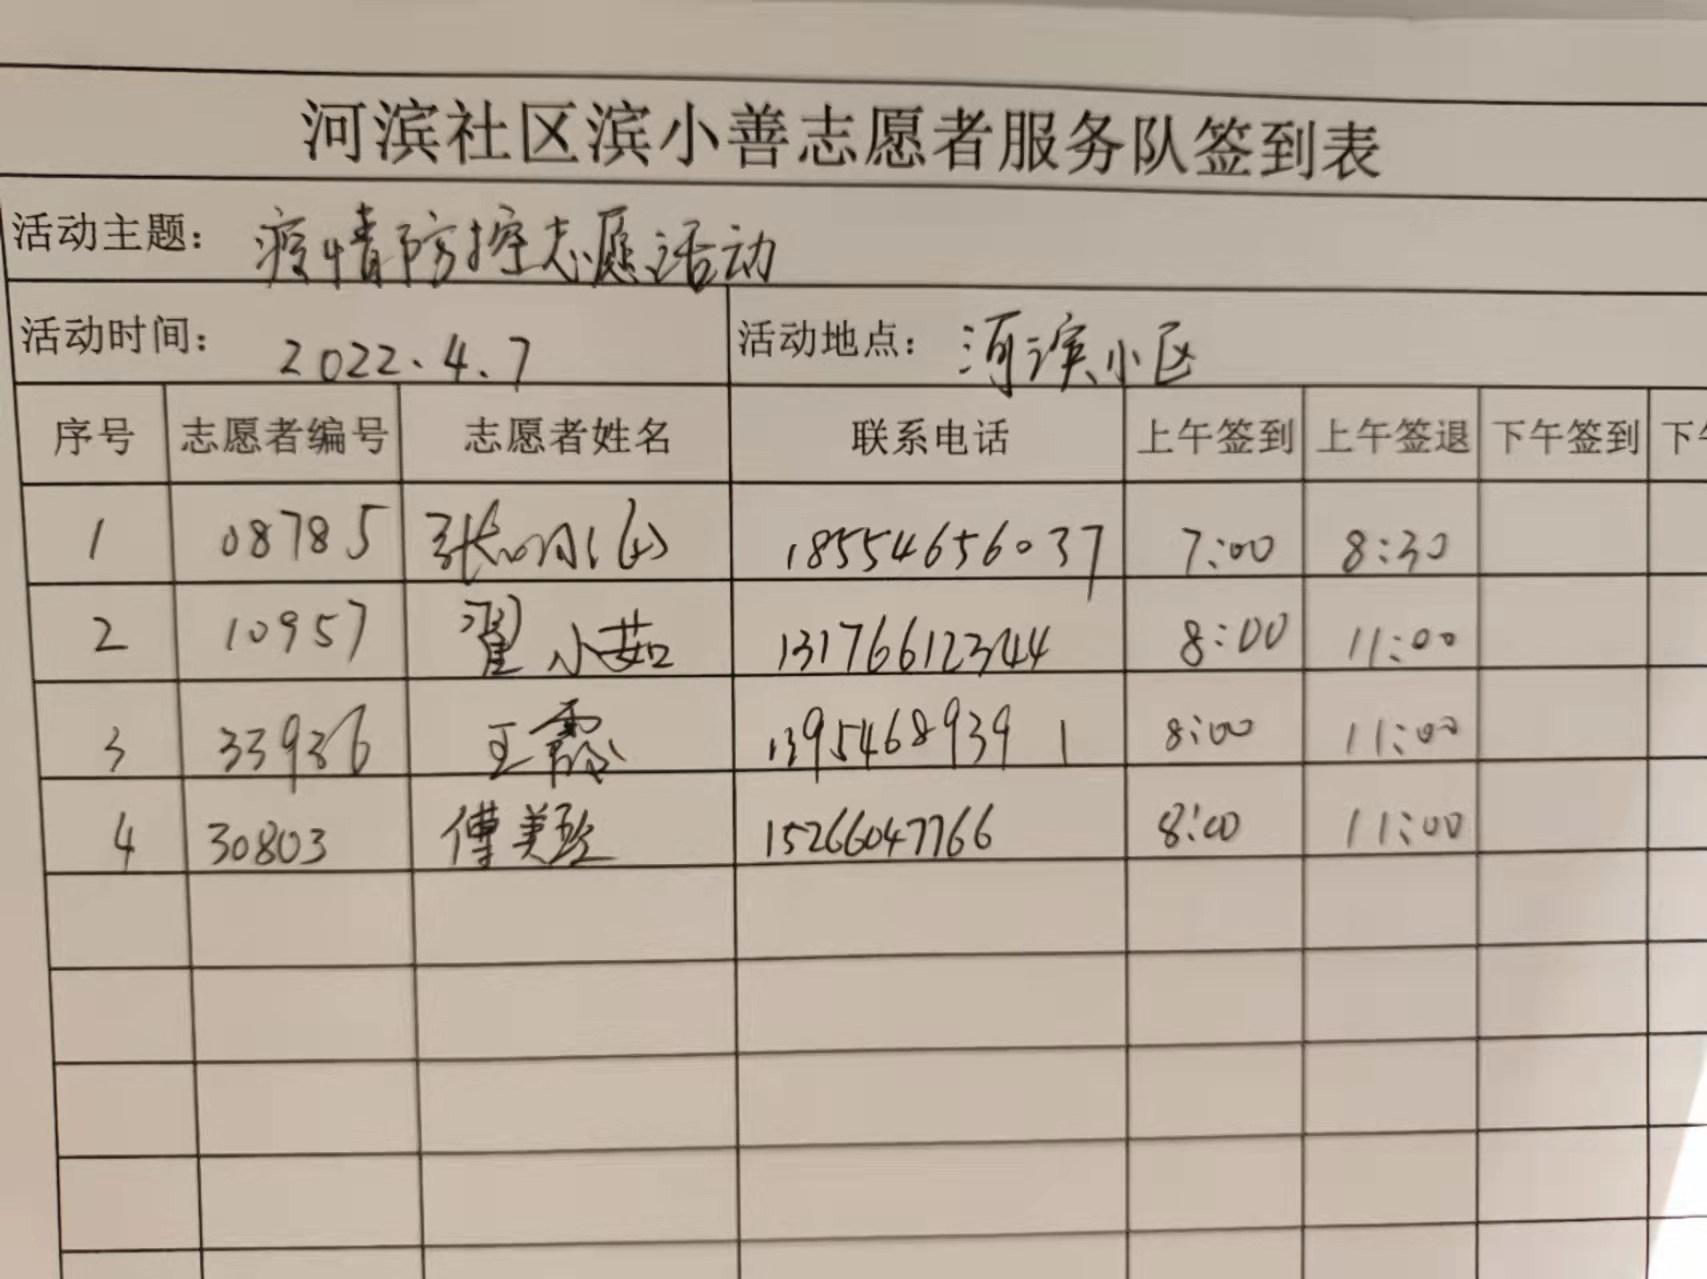 河滨社区滨小善志愿者服务队签到表
活动主题： 疫情防控志愿活动
活动时间： 2022.4.7 活动地点： 河滨小区
序号 志愿者编号 志愿者姓名 联系电话 上午签到 上午签退 下午签到 下午
1 08785 张 18554656037 7:00 8:30
2 10957 翟小茹 13176612344 8:00 11:00
3 33936 王霞 13954689391 8:00 11:00
4 30803 傅美 15266047766 8:00 11:00